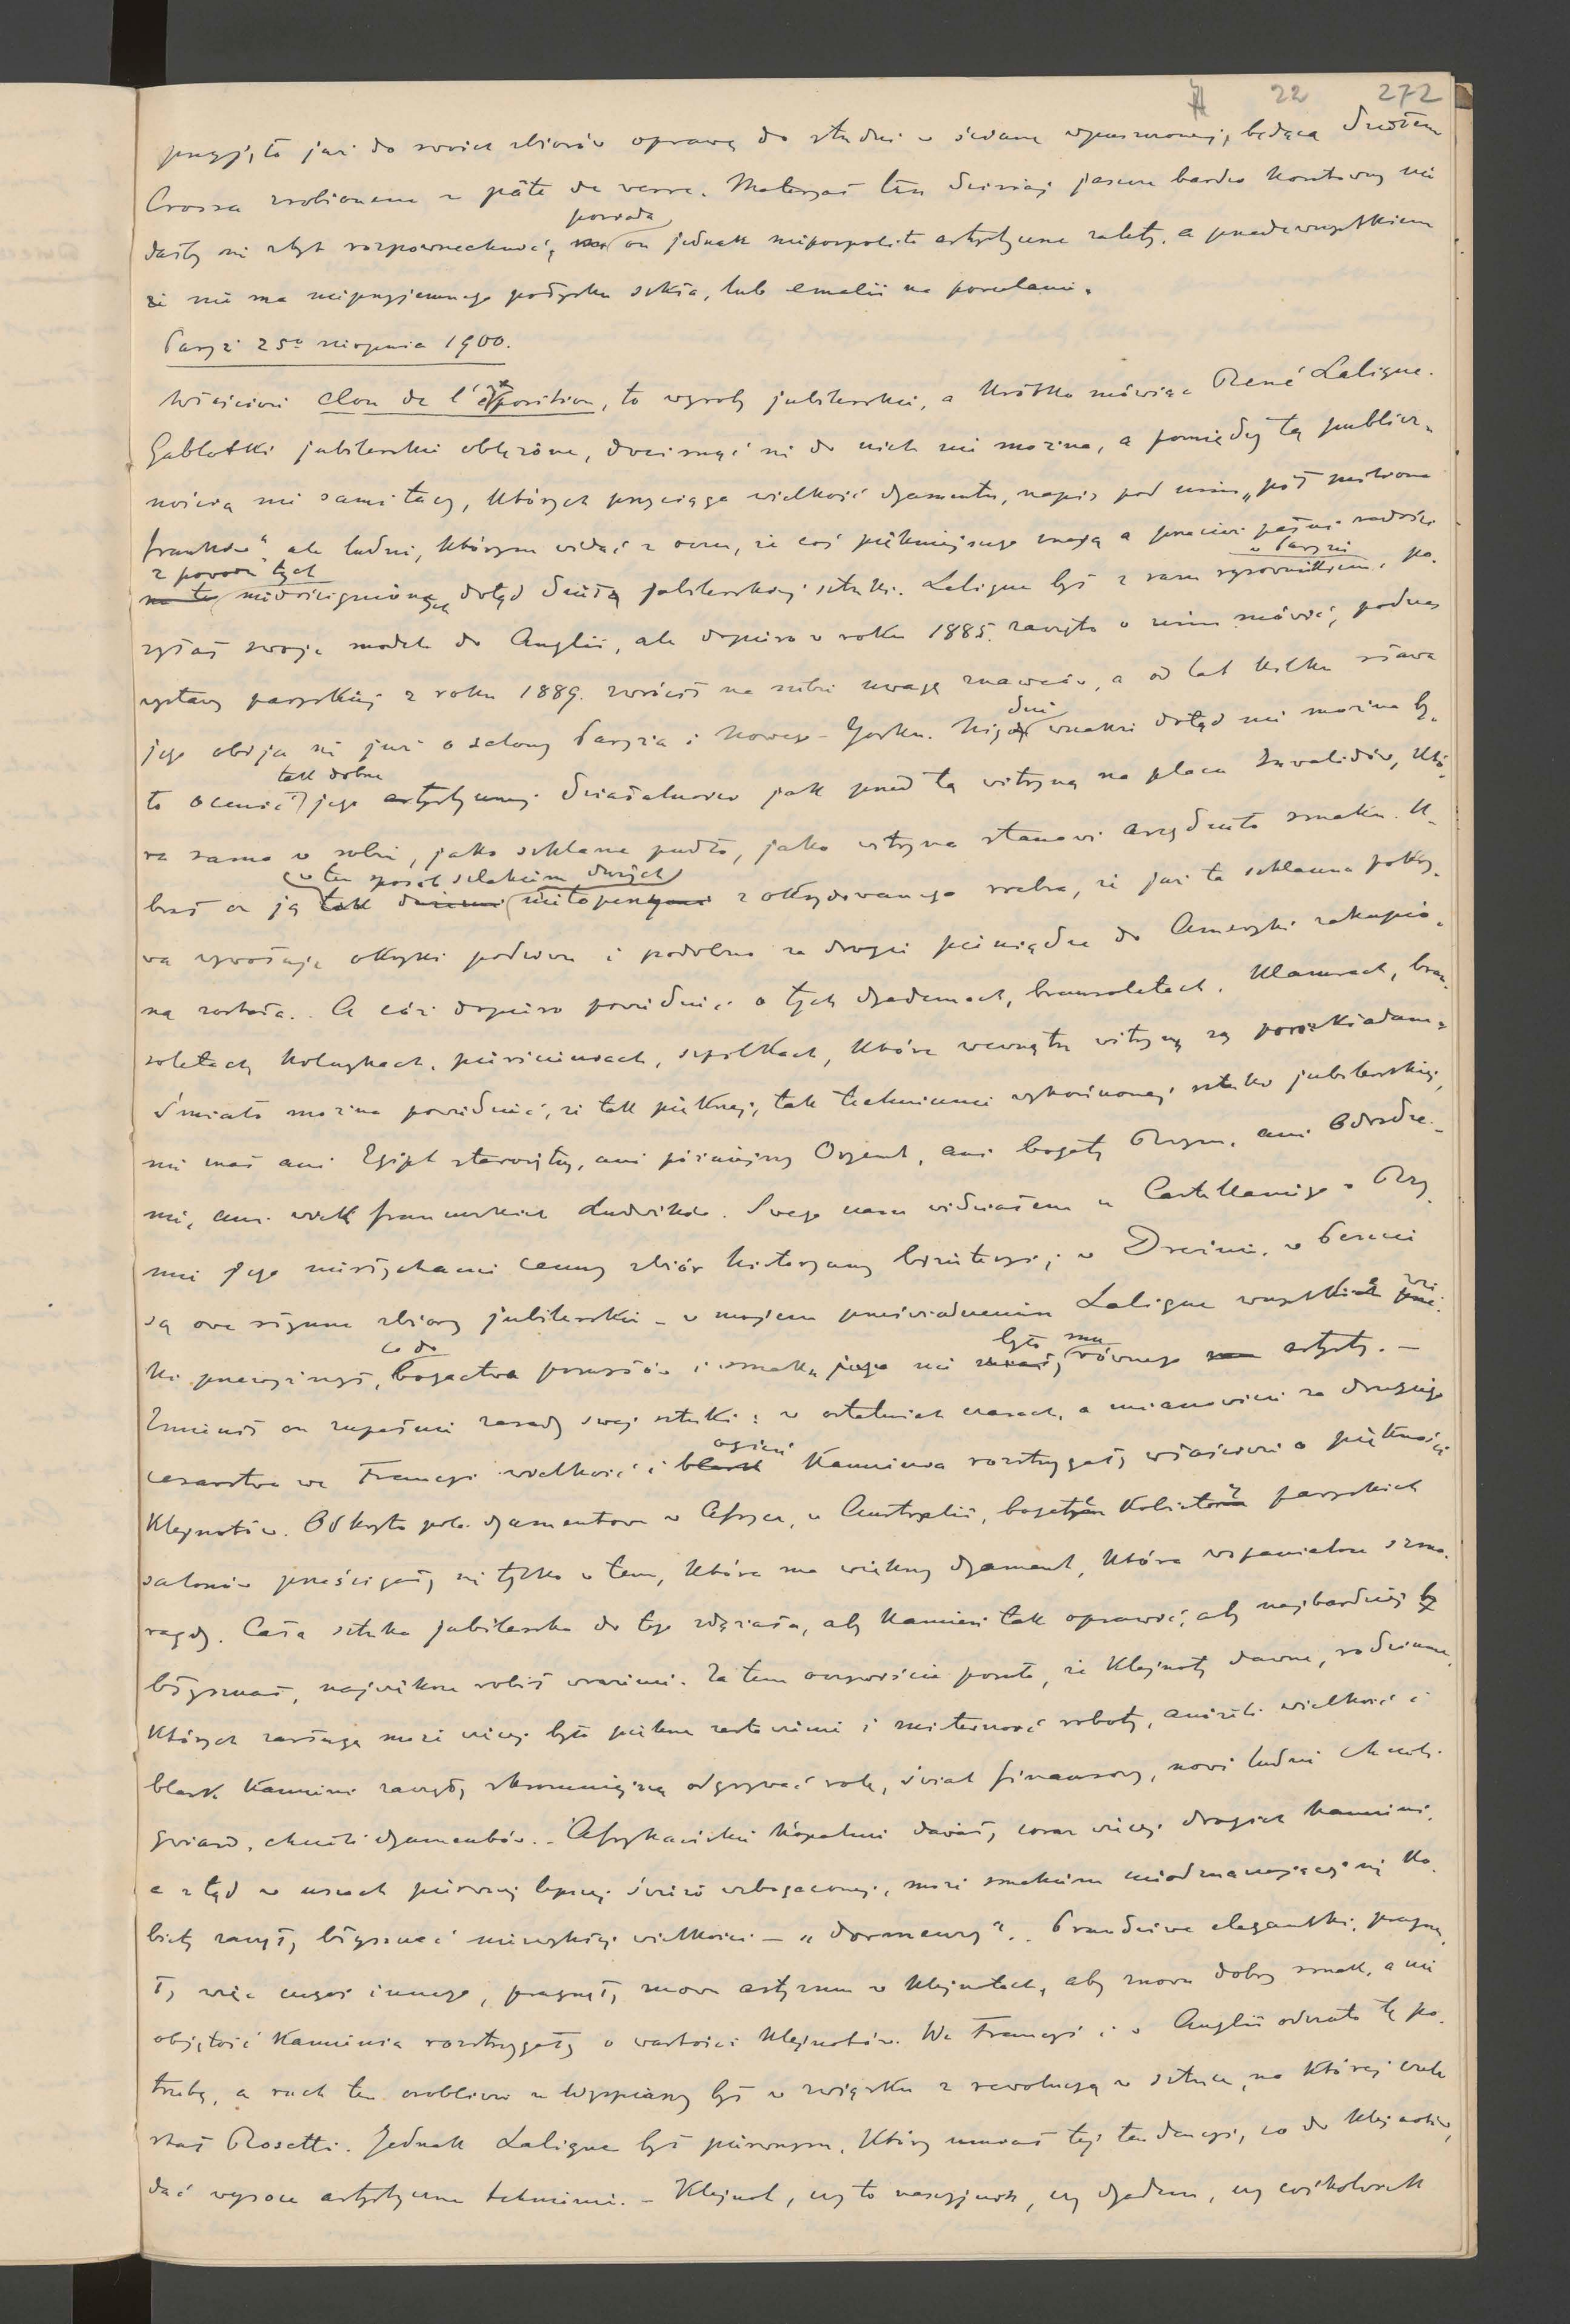 22 272
przyjęto już do swoich zbiorów oprawę do studni w ścianę wpuszczonej, będącą dziełem
Crossa zrobionem z pâte de verre. Materyał ten dzisiaj jeszcze bardzo kosztowny nie
dałby się zbyt rozpowszechnić, posiada on jednak niepospolite artystyczne zalety, a przedewszystkiem
że nie ma nieprzyjemnego połysku szkła, lub emalii na porcelanie.
Paryż 25o sierpnia 1900.
Właściwie clou de l'exposition, to wyroby jubilerskie, a krótko mówiąc René Lalique.
Gablotki jubilerskie oblężone, docisnąć się do nich nie można, a pomiędzy tą publicz-
nością nie sami tacy, których przyciąga wielkość dyamentu, napis pod nim „pół miliona
franków", ale ludzie, którym widać z oczu, że coś piękniejszego znają a przecież pełni radości
z powodu tych niedoścignionych dotąd dzieł jubilerskiej sztuki. Lalique był z razu w Paryżu rysownikiem, po-
syłał swoje modele do Anglii, ale dopiero w roku 1885. zaczęto o nim mówić, podczas
wystawy paryskiej z roku 1889. zwrócił na siebie uwagę znawców, a od lat kilku sława
jego obija się już o salony Paryża i Nowego-Yorku. Nigdzie wszakże dotąd nie można by-
ło ocenić tak dobrze jego artystycznej działalności jak przed tą witryną na placu Inwalidów, któ-
ra sama w sobie, jako szklane pudło, jako witryna stanowi arcydzieło smaku. U-
brał on ją w ten sposób szlakiem dużych nietoperzy z oksydowanego srebra, że już ta szklanna pokry-
wa wywołuje okrzyki podziwu i podobno za drogie pieniądze do Ameryki zakupio-
ną została. A cóż dopiero powiedzieć o tych dyademach, bransoletach, klamrach, bran-
soletach, kolczykach, pierścionkach, szpilkach, które wewnątrz witryny są porozkładane.
Śmiało można powiedzieć, że tak pięknej, tak technicznie wykończonej sztuki jubilerskiej,
nie znał ani Egipt starożytny, ani późniejszy Oryent, ani bogaty Rzym, ani Odrodze-
nie, ani wiek francuskich Ludwików. Swego czasu widziałem u Castellaniego w Rzy-
mie jego niesłychanie cenny zbiór historyczny biżuteryi; w Dreźnie, w Peszcie
są owe słynne zbiory jubilerskie – w mojem przeświadczeniu Lalique wszystkie wie-
ki przewyższył, co do bogactwa pomysłów i smaku nie było mu równego artysty. –
Zmienił on zupełnie zasady swej sztuki: w ostatnich czasach, a mianowicie za drugiego
cesarstwa we Francyi wielkość i ogień kamienia rozstrzygały właściwie o piękności
klejnotów. Odkryto pola dyamentowe w Afryce, w Australii, bogate kobiety paryskich
salonów prześcigały się tylko w tem, która ma większy dyament, która wspanialsze szma-
ragdy. Cała sztuka jubilerska do tego dążała, aby kamień tak oprawić, aby najbardziej
błyszczał, największe robił wrażenie. Za tem oczywiście poszło, że klejnoty dawne, rodzinne,
których zasługą może więcej było piękne zestawienie i misterność roboty, aniżeli wielkość i
blask kamieni zaczęły skromniejszą odgrywać rolę, świat finansowy, nowi ludzie chcieli
gwiazd, chcieli dyamentów. – Afrykańskie kopalnie dawały coraz więcej drogich kamieni,
a ztąd w uszach pierwszej lepszej świeżo wzbogaconej, może smakiem nieodznaczającej się ko-
biety zaczęły błyszczeć niezwykłej wielkości – „dormeuzy". Prawdziwe elegantki, pragnę-
ły więc czegoś innego, pragnęły znowu artyzmu w klejnotach, aby znowu dobry smak, a nie
objętość kamienia rozstrzygały o wartości klejnotów. We Francyi i w Anglii odczuto tę po-
trzebę, a ruch ten osobliwie u Wyspiarzy był w związku z rewolucyą w sztuce, na której czele
stał Rosetti. Jednak Lalique był pierwszym, który umiał tej tendencyi, co do klejnotów,
dać wysoce artystyczne tchnienie. – Klejnot, czy to naszyjnik, czy dyadem, czy cośkolwiek